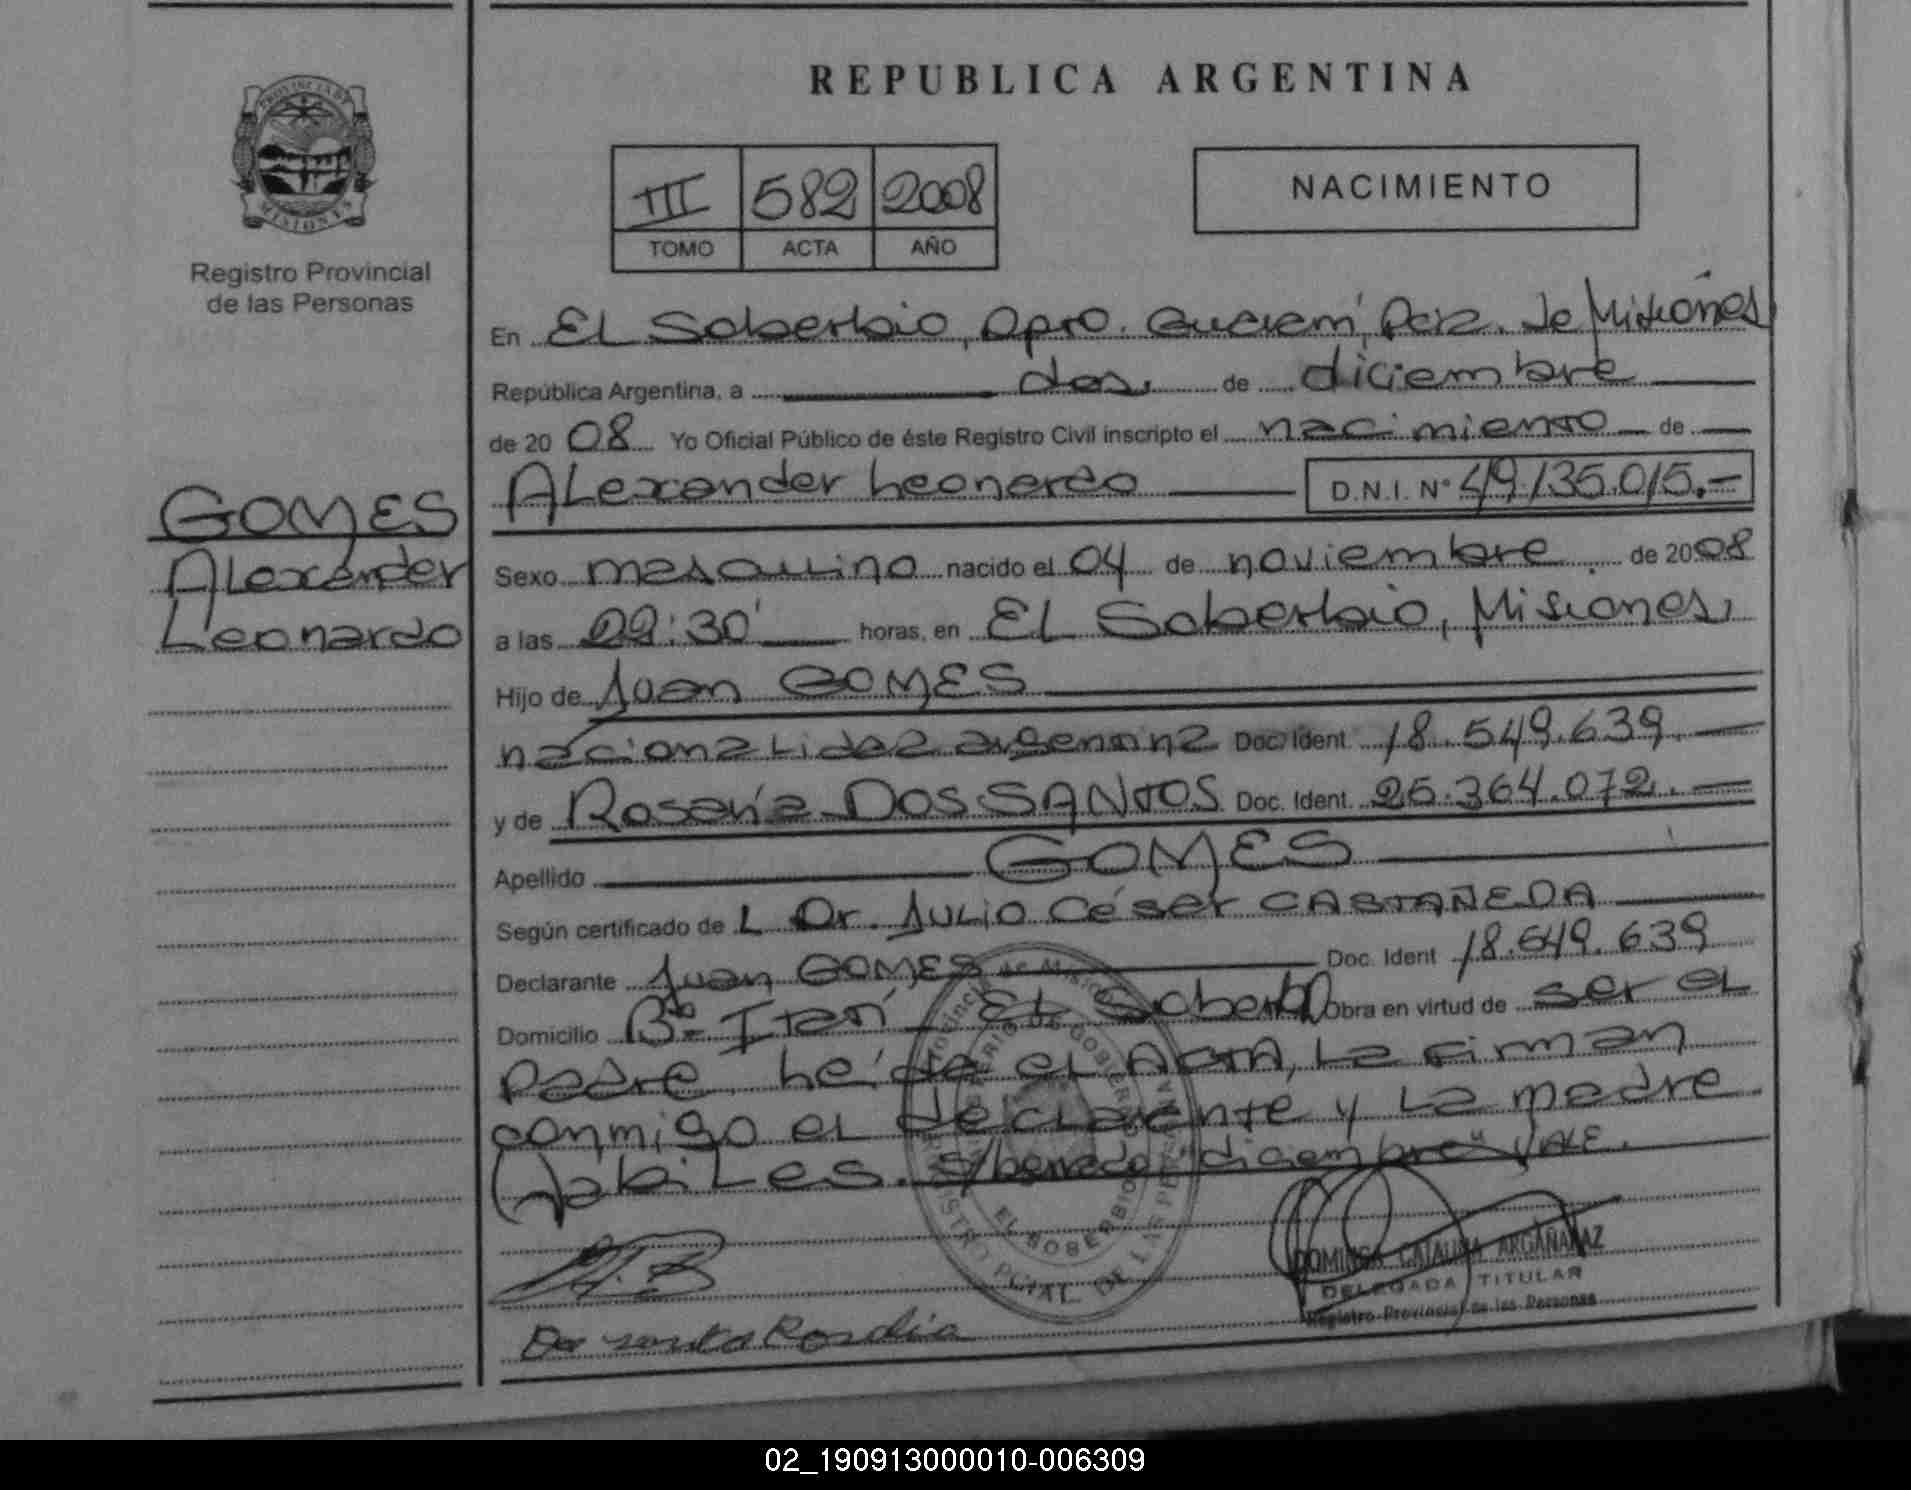 REPUBLICA ARGENTINA
PROVINCIA DE
MISIONES
Registro Provincial
de las Personas
III 582 2008
TOMO ACTA AÑO
NACIMIENTO
En El Soberbio, Dpto. Guaraní, Pcia. de Misiones
República Argentina, a dos de diciembre
de 2008 Yo Oficial Público de éste Registro Civil inscripto el nacimiento de
Alexander Leonardo D.N.I. N° 49.135.015.-
GOMES
Alexander
Leonardo
Sexo masculino nacido el 04 de noviembre de 2008
a las 22:30' horas, en El Soberbio, Misiones,
Hijo de Juan GOMES
nacionalidad argentina Doc. Ident. 18.549.639.
y de Rosaria DOS SANTOS Doc. Ident. 25.364.072.
Apellido GOMES
Según certificado de L Dr. Julio César CASTAÑEDA
Declarante Juan GOMES Doc. Ident 18.549.639
Domicilio B° Itatí El Soberbio Obra en virtud de ser el
padre, leída el ACTA, la firman
conmigo el declarante y la madre
Habiles. s/borrado "diciembre" VALE.
Provincia de Misiones
MINISTERIO DE GOBIERNO
EL SOBERBIO
REGISTRO PCIAL. DE LAS PERSONAS
DOMINGA CATALINA ARGAÑARAZ
DELEGADA TITULAR
Registro Provincial de las Personas
02_190913000010-006309